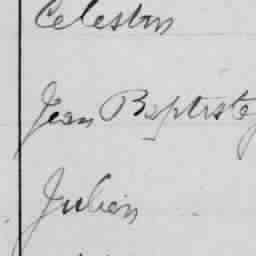 Celestin
Jean Baptiste
Julien